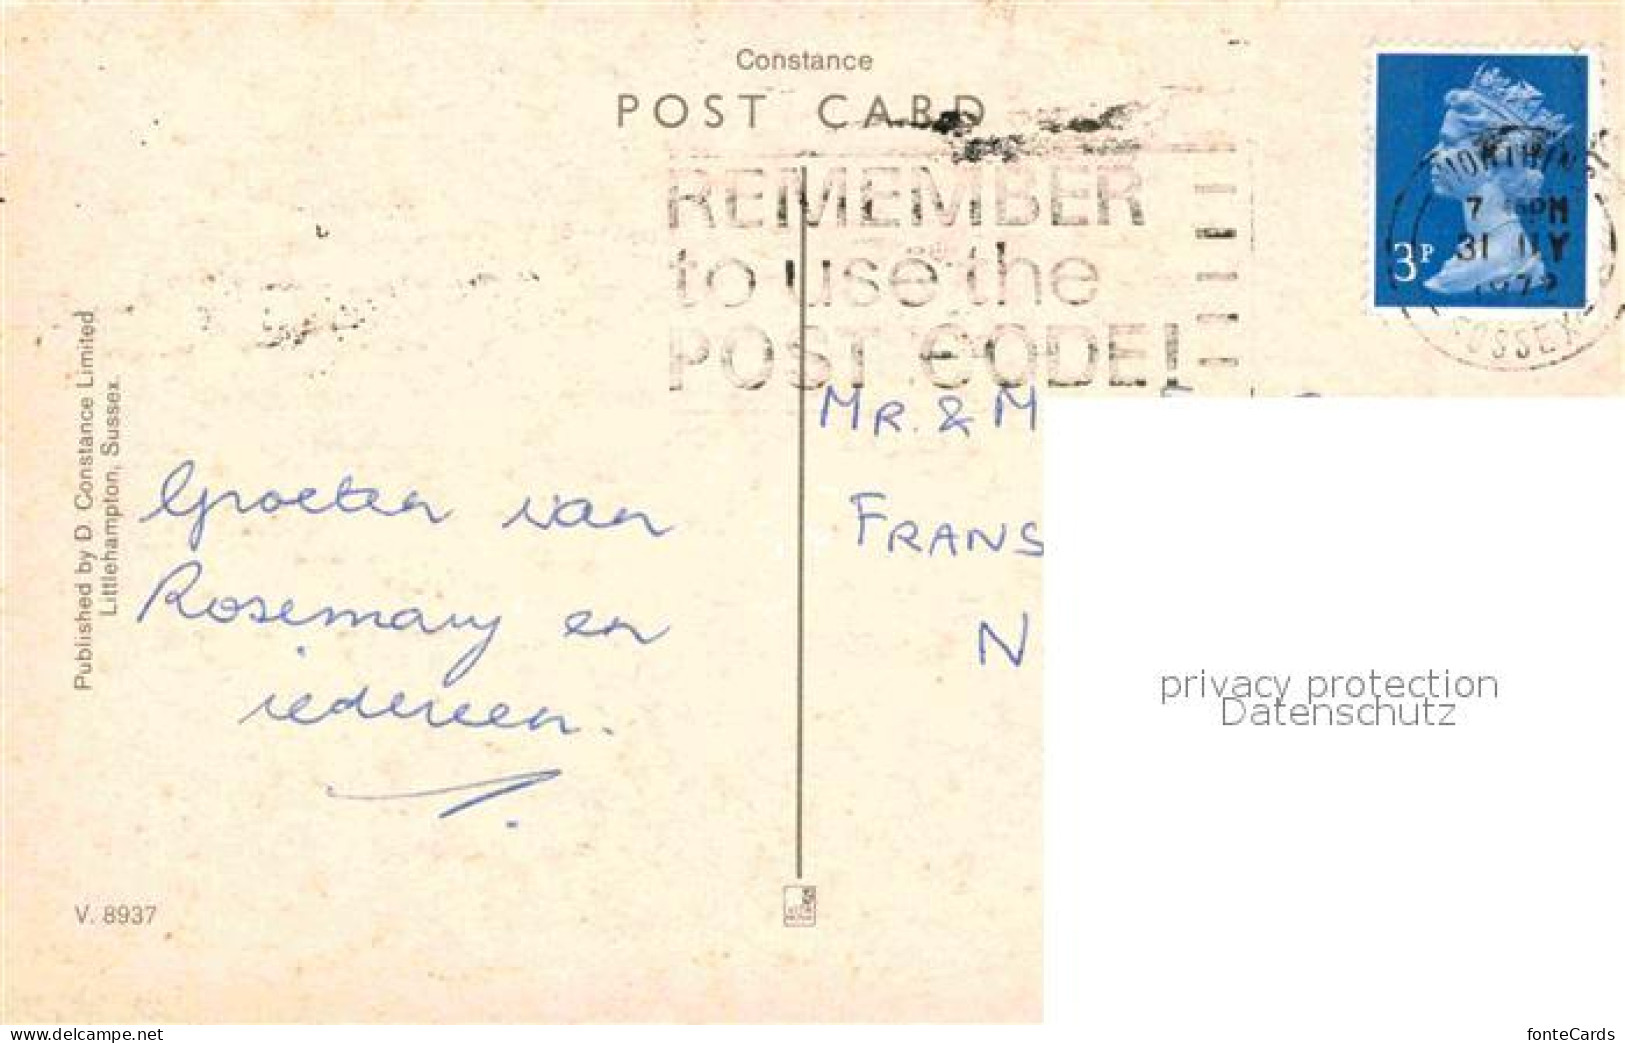 Constance
POST CARD
REMEMBER
to use the
POST CODE!
3P
WORTHING
7 PM
31 MY
SUSSEX
Groeten van
Rosemary en
iedereen.
MR. & M
FRANS
N
Published by D. Constance Limited
Littlehampton, Sussex.
V. 8937
privacy protection
Datenschutz
www.delcampe.net
fonteCards